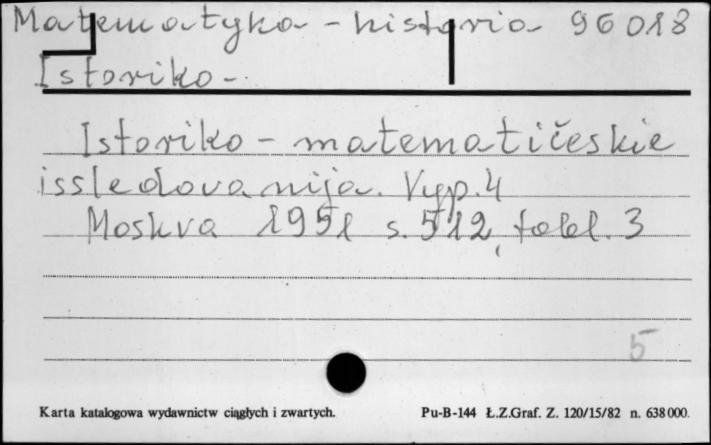 Matematyka - historia 96018
Istoriko -
Istoriko - matematičeskie
issledovanija. Vyp. 4
Moskva 1951 s. 512, tabl. 3
5
Karta katalogowa wydawnictw ciągłych i zwartych. Pu-B-144 Ł.Z.Graf. Z. 120/15/82 n. 638000.